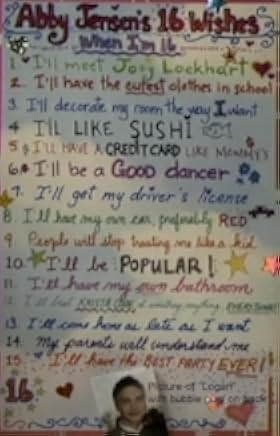 Abby Jensen's 16 Wishes
When I'm 16
1. I'll meet Joey Lockhart
2. I'll have the cutest clothes in school
3. I'll decorate my room the way I want
4 I'LL LIKE SUSHI
5 I'LL HAVE A CREDIT CARD LIKE MOMMY'S
6. I'll be a GOOD dancer
7. I'll get my driver's license
8. I'll have my own car, preferably RED
9. People will stop treating me like a kid
10. I'll be POPULAR!
11. I'll have my own bathroom
12. I'll beat KRISTA COOK at anything
EVERYTHING
13. I'll come home as late as I want
14. My parents will understand me
15. I'll have the BEST PARTY EVER!
16
Picture of "Logan"
with bubble gum on back